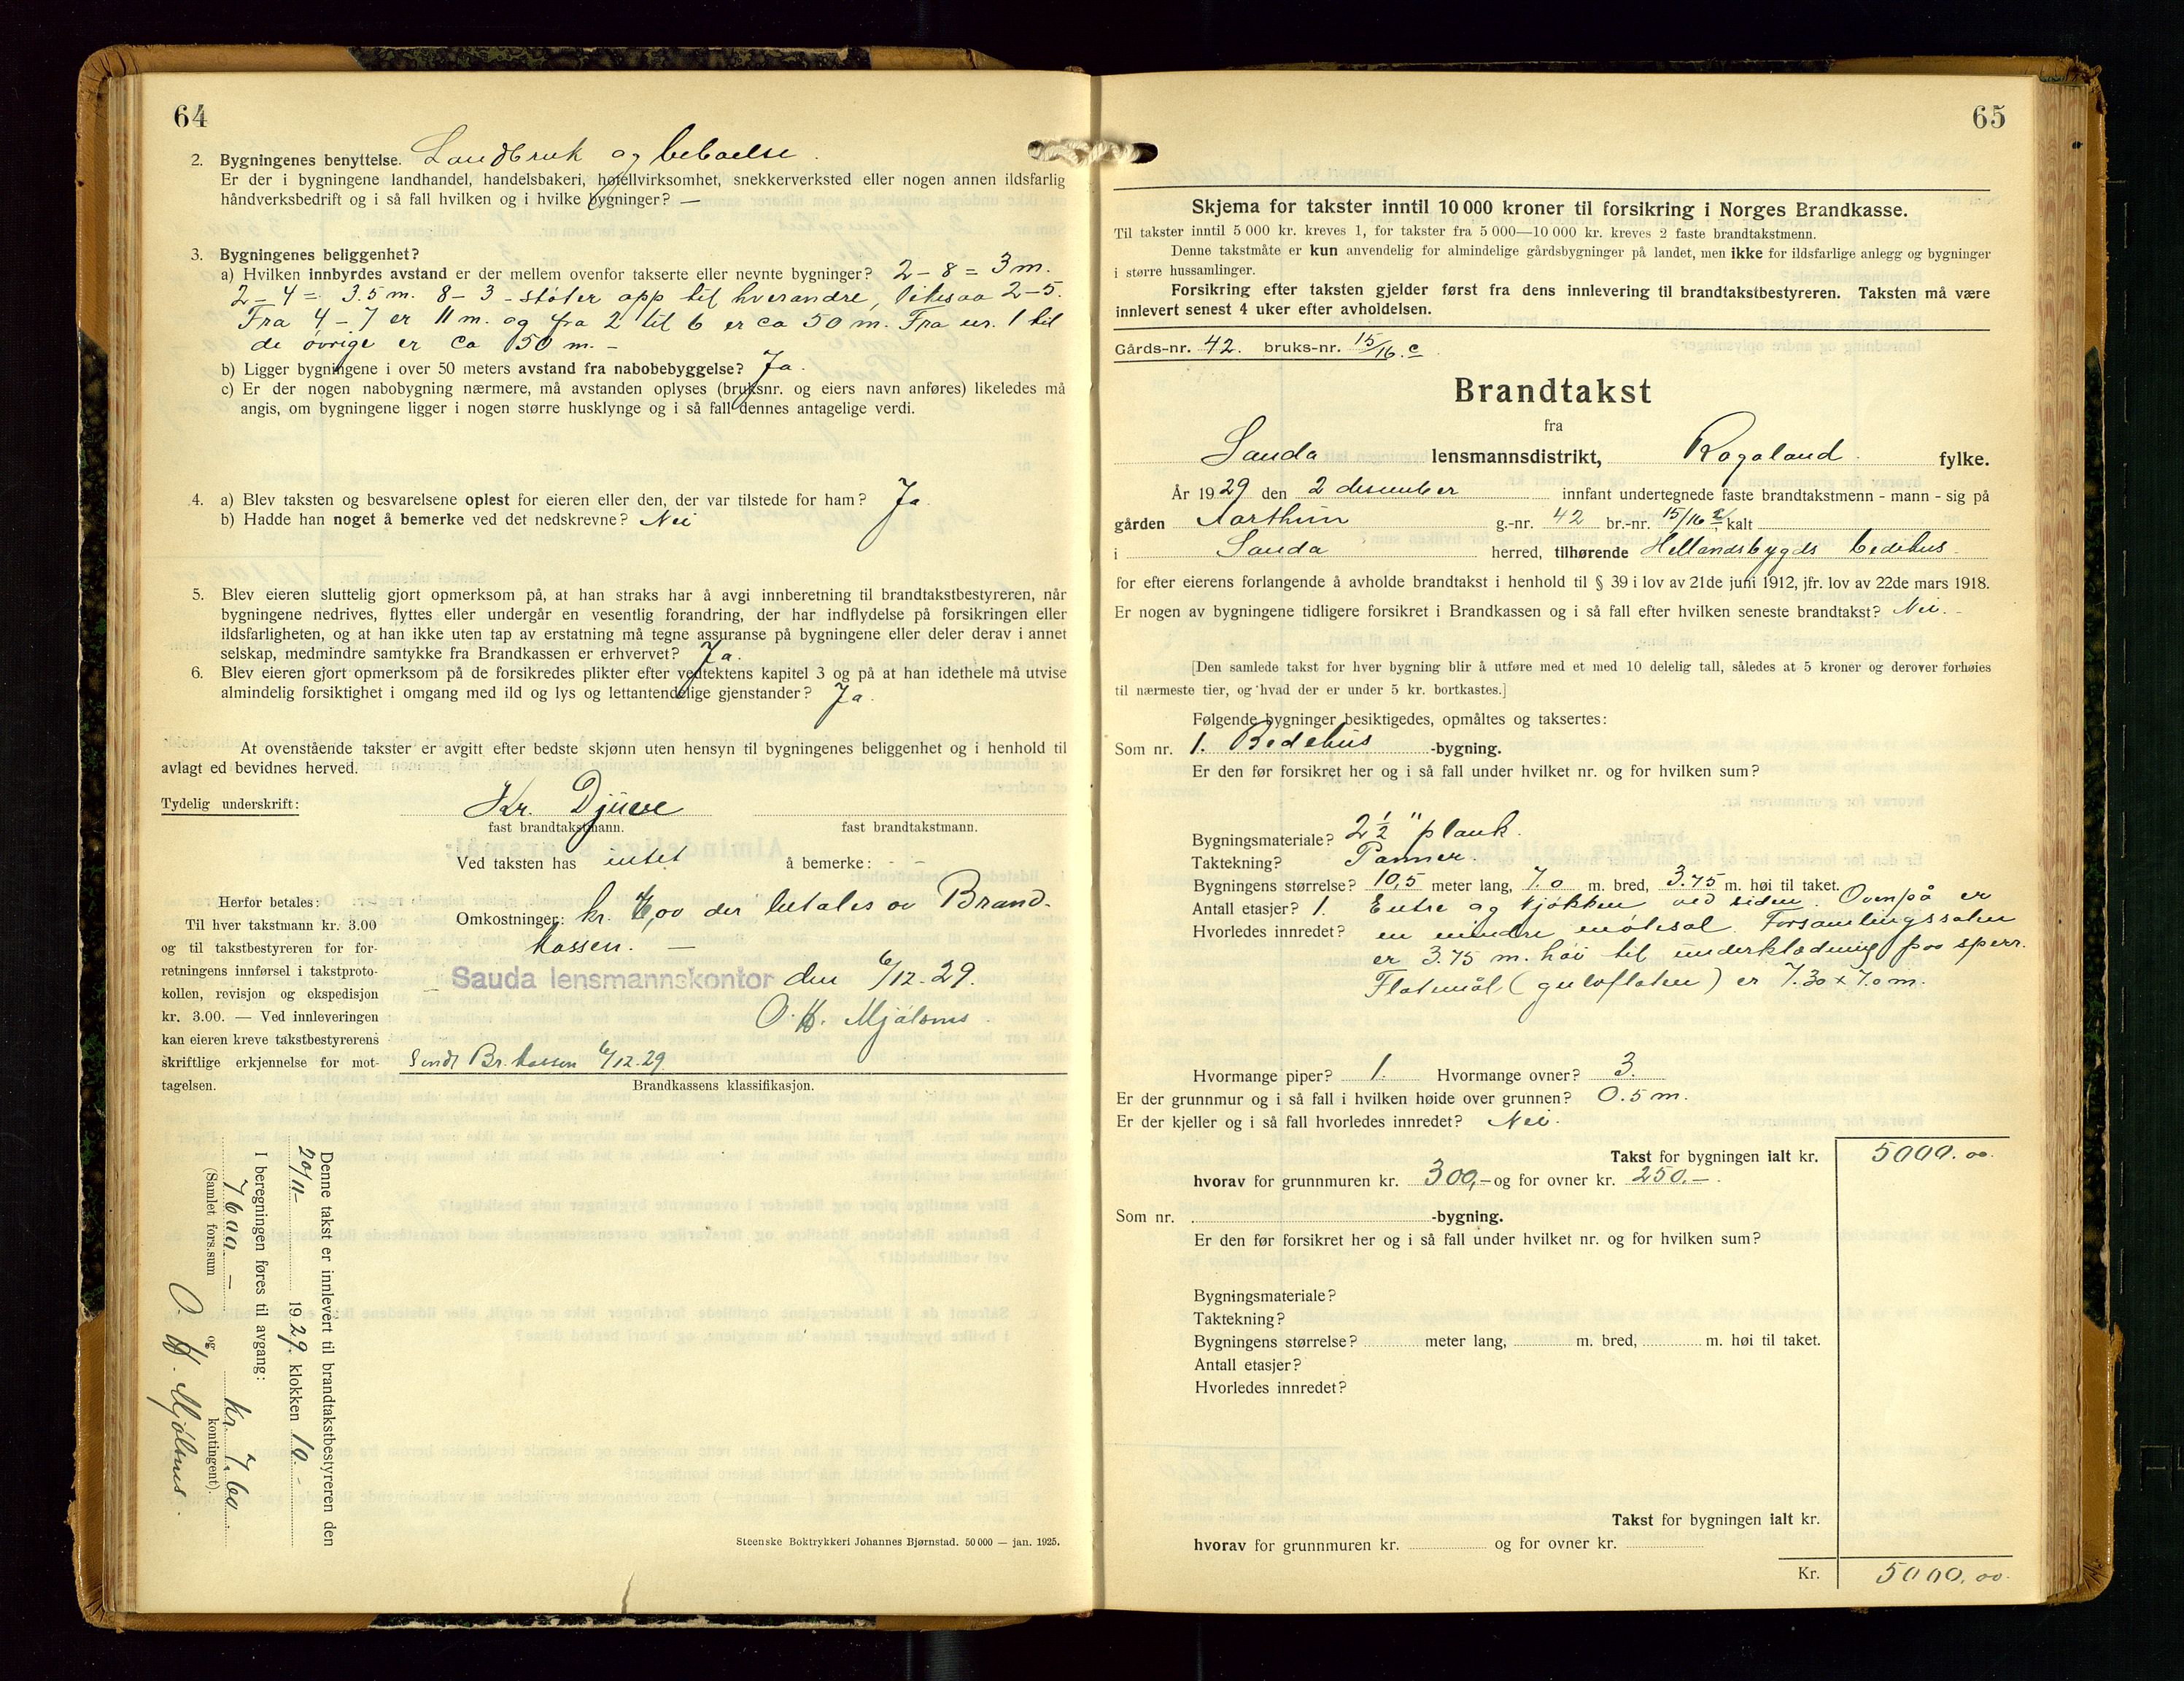 64
2. Bygningenes benyttelse. Landbruk og beboelse.
Er der i bygningene landhandel, handelsbakeri, hotellvirksomhet, snekkerverksted eller nogen annen ildsfarlig
håndverksbedrift og i så fall hvilken og i hvilke bygninger? —
3. Bygningenes beliggenhet?
a) Hvilken innbyrdes avstand er der mellem ovenfor takserte eller nevnte bygninger? 2 - 8 = 3 m.
2 - 4 = 3.5 m. 8 - 3 - støter opp til hverandre, likesaa 2-5.
Fra 4 - 7 er 11 m. og fra 2 til 6 er ca 50 m. Fra nr. 1 til
de øvrige er ca 150 m. -
b) Ligger bygningene i over 50 meters avstand fra nabobebyggelse? Ja.
c) Er der nogen nabobygning nærmere, må avstanden oplyses (bruksnr. og eiers navn anføres) likeledes må
angis, om bygningene ligger i nogen større husklynge og i så fall dennes antagelige verdi.
4. a) Blev taksten og besvarelsene oplest for eieren eller den, der var tilstede for ham? Ja.
b) Hadde han noget å bemerke ved det nedskrevne? Nei
5. Blev eieren sluttelig gjort opmerksom på, at han straks har å avgi innberetning til brandtakstbestyreren, når
bygningene nedrives, flyttes eller undergår en vesentlig forandring, der har indflydelse på forsikringen eller
ildsfarligheten, og at han ikke uten tap av erstatning må tegne assuranse på bygningene eller deler derav i annet
selskap, medmindre samtykke fra Brandkassen er erhvervet? Ja.
6. Blev eieren gjort opmerksom på de forsikredes plikter efter vedtektens kapitel 3 og på at han idethele må utvise
almindelig forsiktighet i omgang med ild og lys og lettantendelige gjenstander? Ja.
At ovenstående takster er avgitt efter bedste skjønn uten hensyn til bygningenes beliggenhet og i henhold til
avlagt ed bevidnes herved.
Tydelig underskrift: Kr. Djuve
fast brandtakstmann. fast brandtakstmann.
Ved taksten has intet å bemerke: - -
Omkostninger: kr. 6,00 der betales av Brand-
kassen. —
Sauda lensmannskontor den 6/12-29.
O. K. Mjølsnes.
Sendt Br. kassen 6/12.29.
Brandkassens klassifikasjon.
Herfor betales:
Til hver takstmann kr. 3.00
og til takstbestyreren for for-
retningens innførsel i takstproto-
kollen, revisjon og ekspedisjon
kr. 3.00. — Ved innleveringen
kan eieren kreve takstbestyrerens
skriftlige erkjennelse for mot-
tagelsen.
Denne takst er innlevert til brandtakstbestyreren den
20/11- 1929. klokken 10. -
I beregningen føres til avgang:
7600 — kr. 7,60
(Samlet fors.sum og kontingent).
O. K. Mjølsnes.
Steenske Boktrykkeri Johannes Bjørnstad. 50 000 — jan. 1925.
65
Skjema for takster inntil 10 000 kroner til forsikring i Norges Brandkasse.
Til takster inntil 5 000 kr. kreves 1, for takster fra 5 000—10 000 kr. kreves 2 faste brandtakstmenn.
Denne takstmåte er kun anvendelig for almindelige gårdsbygninger på landet, men ikke for ildsfarlige anlegg og bygninger
i større hussamlinger.
Forsikring efter taksten gjelder først fra dens innlevering til brandtakstbestyreren. Taksten må være
innlevert senest 4 uker efter avholdelsen.
Gårds-nr. 42. bruks-nr. 15/16.c
Brandtakst
fra
Sauda lensmannsdistrikt, Rogaland. fylke.
År 1929 den 2 desember innfant undertegnede faste brandtakstmenn - mann - sig på
gården Aarthun g.-nr. 42 br.-nr. 15/16 c, kalt
i Sauda herred, tilhørende Hellandsbygds bedehus
for efter eierens forlangende å avholde brandtakst i henhold til § 39 i lov av 21de juni 1912, jfr. lov av 22de mars 1918.
Er nogen av bygningene tidligere forsikret i Brandkassen og i så fall efter hvilken seneste brandtakst? Nei. -
[Den samlede takst for hver bygning blir å utføre med et med 10 delelig tall, således at 5 kroner og derover forhøies
til nærmeste tier, og hvad der er under 5 kr. bortkastes.]
Følgende bygninger besiktigedes, opmåltes og taksertes:
Som nr. 1. Bedehus -bygning.
Er den før forsikret her og i så fall under hvilket nr. og for hvilken sum?
Bygningsmateriale? 2 1/2 " plank.
Taktekning? Panner
Bygningens størrelse? 10,5 meter lang, 7.0 m. bred, 3.75 m. høi til taket.
Antall etasjer? 1. Entre og kjøkken ved siden. Ovenpå er
Hvorledes innredet? en mindre møtesal. Forsamlingssalen
er 3.75 m. høi til underklædning paa sperr.
Flatemål (gulvflaten) er 7.30 x 7.0 m.
Hvormange piper? 1. Hvormange ovner? 3.
Er der grunnmur og i så fall i hvilken høide over grunnen? 0.5 m.
Er der kjeller og i så fall hvorledes innredet? Nei.
Takst for bygningen ialt kr. 5000.00.
hvorav for grunnmuren kr. 300,- og for ovner kr. 250.—.
Som nr. -bygning.
Er den før forsikret her og i så fall under hvilket nr. og for hvilken sum?
Bygningsmateriale?
Taktekning?
Bygningens størrelse? meter lang, m. bred, m. høi til taket.
Antall etasjer?
Hvorledes innredet?
Takst for bygningen ialt kr.
hvorav for grunnmuren kr. og for ovner kr.
Kr. 5000,00.